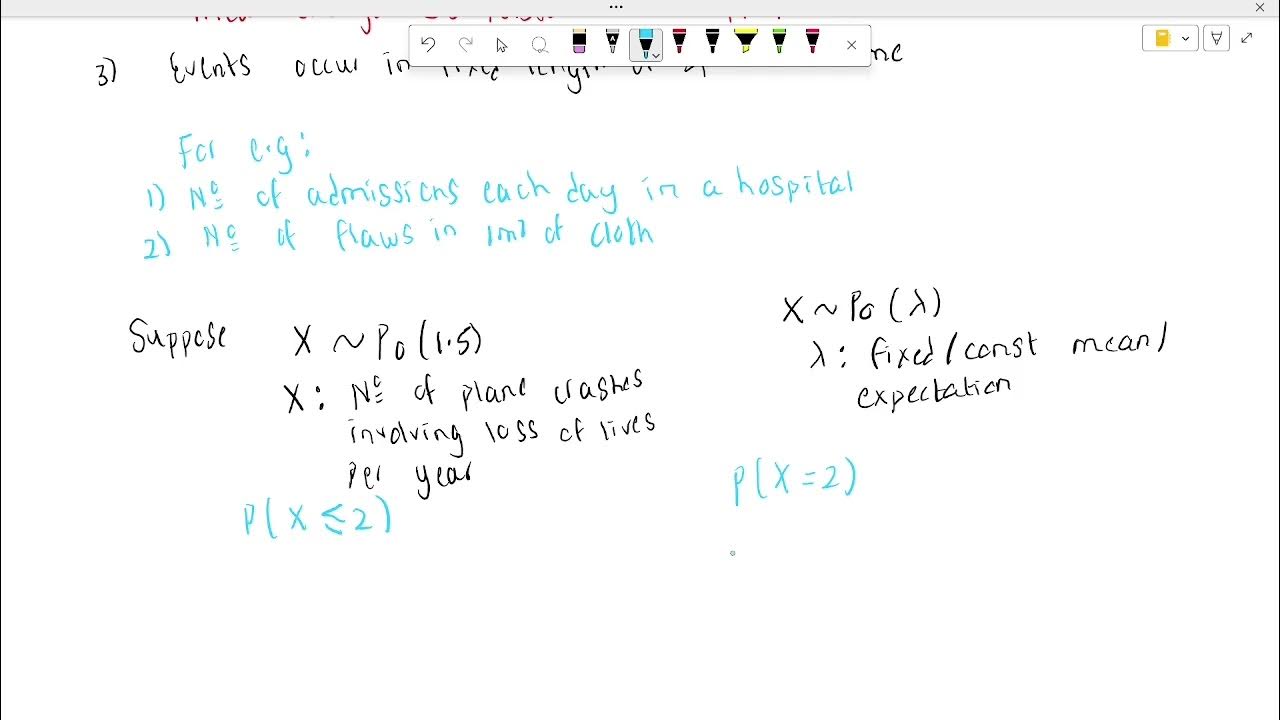 3) Events occur in fixed length of
For e.g:
1) Nº of admissions each day in a hospital
2) Nº of flaws in 1m² of cloth
Suppose X ~ Po(1.5)
X : Nº of plane crashes
involving loss of lives
per year
P(X ≤ 2)
X ~ Po(λ)
λ : fixed/const mean/
expectation
P(X = 2)